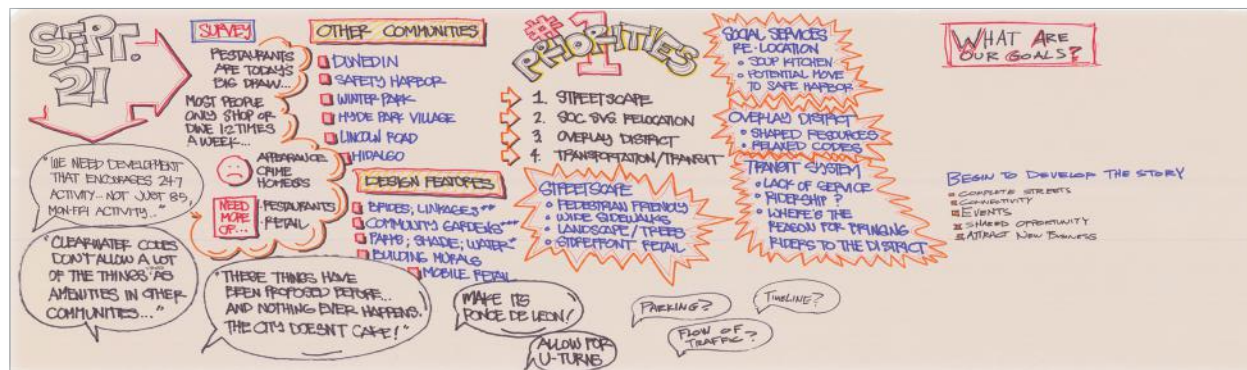 SEPT.
21
SURVEY
RESTAURANTS
ARE TODAY'S
BIG DRAW...
MOST PEOPLE
ONLY SHOP OR
DINE 1-2 TIMES
A WEEK...
APPEARANCE
CRIME
HOMELESS
NEED
MORE
OF...
• RESTAURANTS
• RETAIL
"WE NEED DEVELOPMENT
THAT ENCOURAGES 24-7
ACTIVITY... NOT JUST 8-5,
MON-FRI ACTIVITY..."
"CLEARWATER CODES
DON'T ALLOW A LOT
OF THE THINGS AS
AMENITIES IN OTHER
COMMUNITIES..."
OTHER COMMUNITIES
DUNEDIN
SAFETY HARBOR
WINTER PARK
HYDE PARK VILLAGE
LINCOLN ROAD
HIDALGO
DESIGN FEATURES
BRIDGES; LINKAGES**
COMMUNITY GARDENS***
PARKS; SHADE; WATER*
BUILDING MURALS
MOBILE RETAIL
"THESE THINGS HAVE
BEEN PROPOSED BEFORE...
AND NOTHING EVER HAPPENS.
THE CITY DOESN'T CARE!"
#1
PRIORITIES
1. STREETSCAPE
2. SOC SVS RELOCATION
3. OVERLAY DISTRICT
4. TRANSPORTATION/TRANSIT
STREETSCAPE
• PEDESTRIAN FRIENDLY
• WIDE SIDEWALKS
• LANDSCAPE/TREES
• STOREFRONT RETAIL
MAKE ITS
PONCE DE LEON!
ALLOW FOR
U-TURNS
SOCIAL SERVICES
RE-LOCATION
• SOUP KITCHEN
• POTENTIAL MOVE
TO SAFE HARBOR
OVERLAY DISTRICT
• SHARED RESOURCES
• RELAXED CODES
TRANSIT SYSTEM
• LACK OF SERVICE
• RIDERSHIP?
• WHERE'S THE
REASON FOR BRINGING
RIDERS TO THE DISTRICT
PARKING?
TIMELINE?
FLOW OF
TRAFFIC?
WHAT ARE
OUR GOALS?
BEGIN TO DEVELOP THE STORY
COMPLETE STREETS
CONNECTIVITY
EVENTS
SHARED OPPORTUNITY
ATTRACT NEW BUSINESS